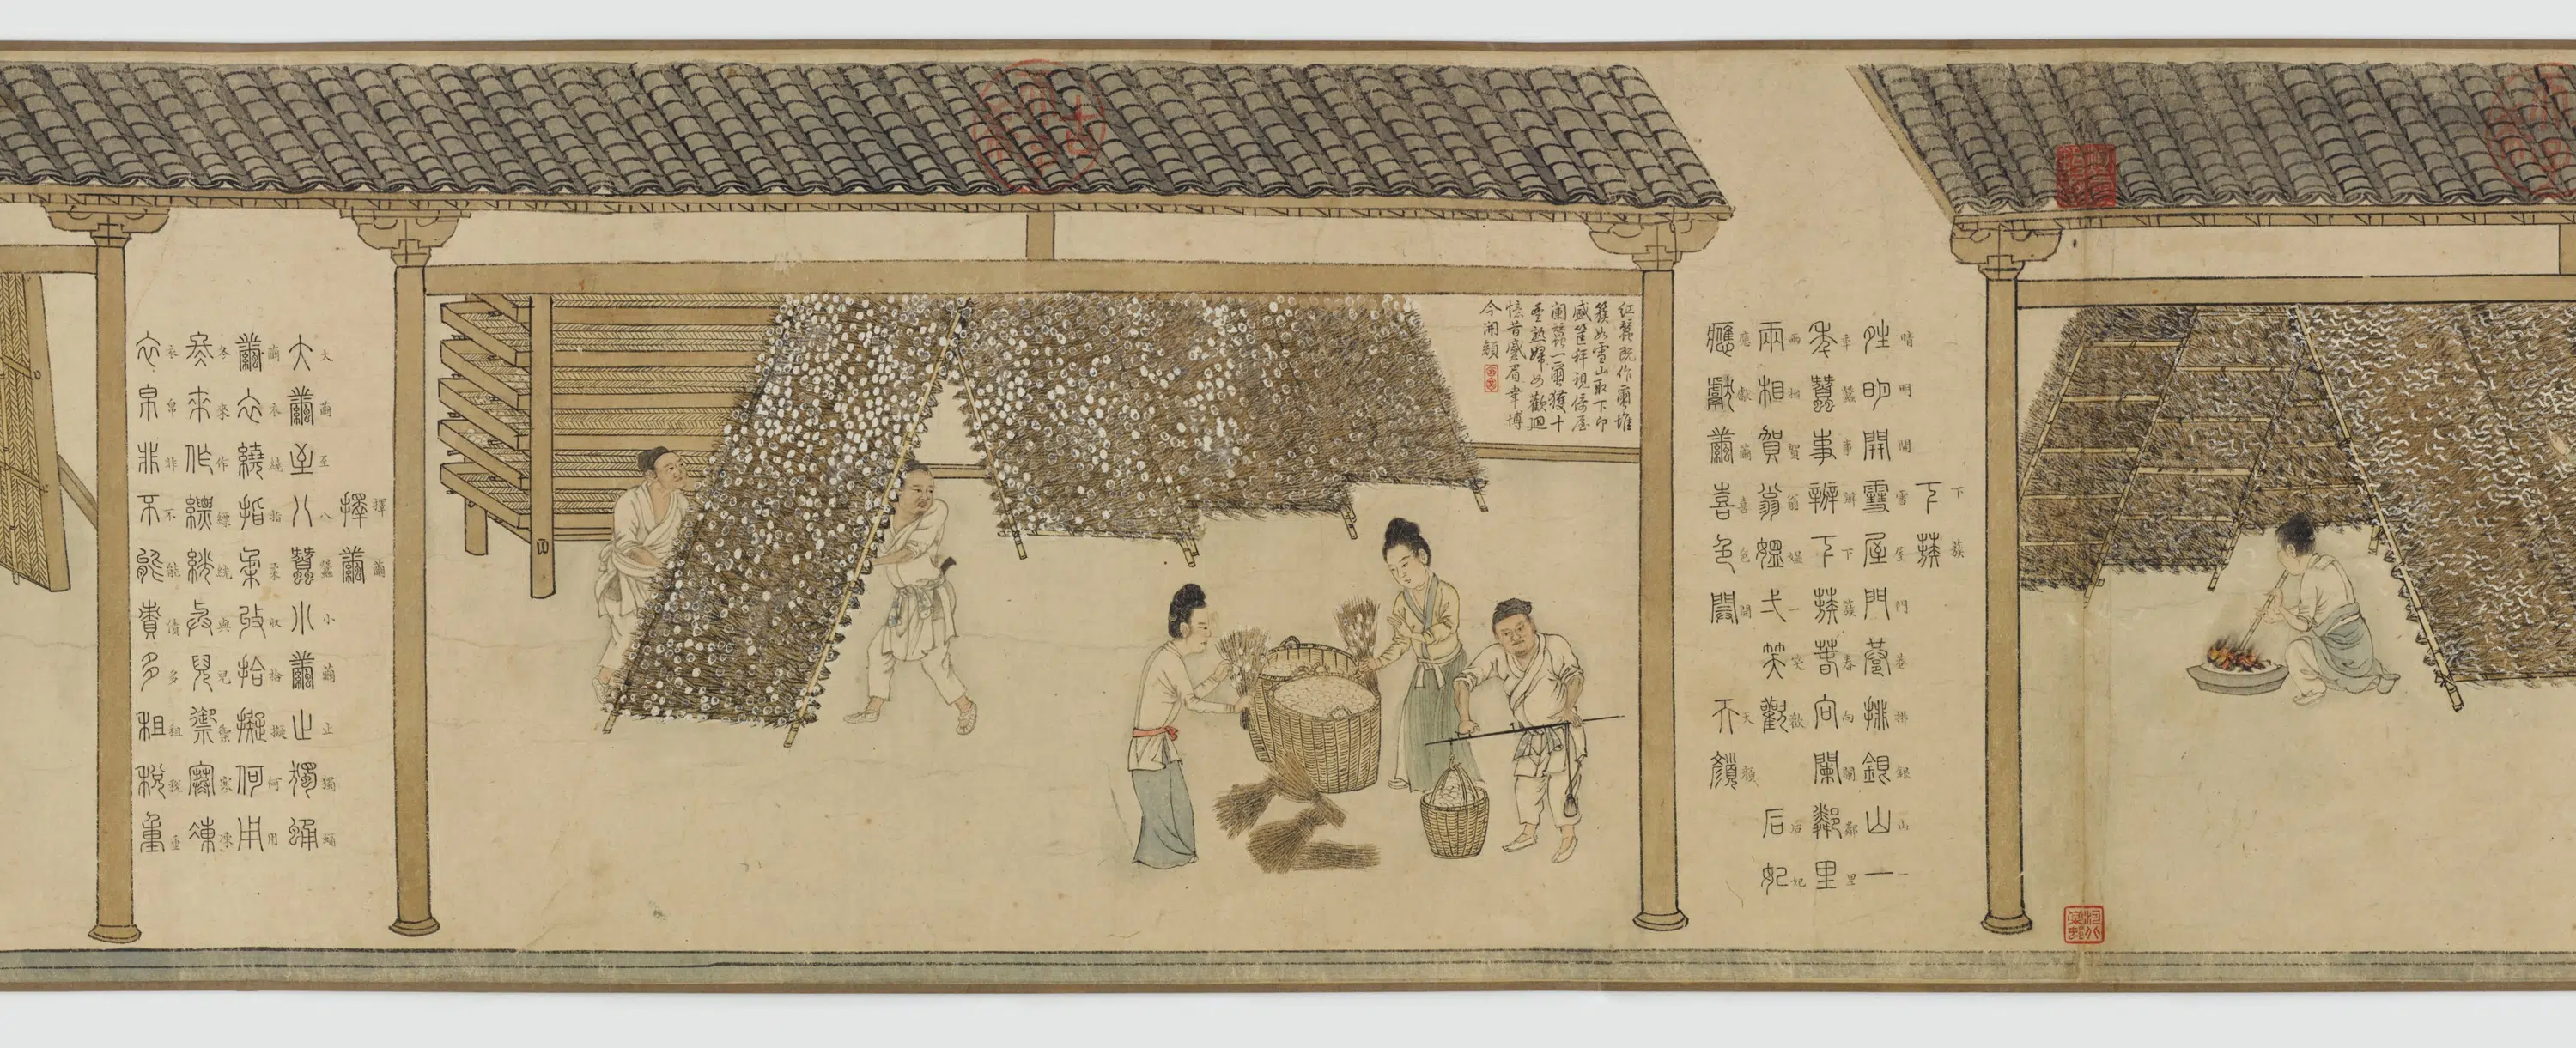 下蔟
晴明開雪屋門巷排銀山一
年蠶事辦下蔟春向闌鄰里
兩相賀翁媼一笑歡后妃
應獻繭喜色開天顏
紅蠶既作繭堆
簇如雪山取下即
盛筐秤視傍屋
闌蠶一繭獲十
豐熟婦女歡廻
憶昔蹙眉幸博
今開顏
擇繭
大繭至八蠶小繭止獨蛹
繭衣繞指柔收拾擬何用
冬來作纊絖與兒禦寒凍
衣帛非不能債多租稅重